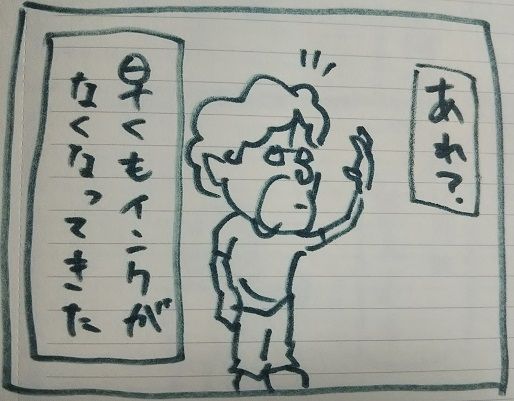 あれ?
早くもインクが
なくなってきた